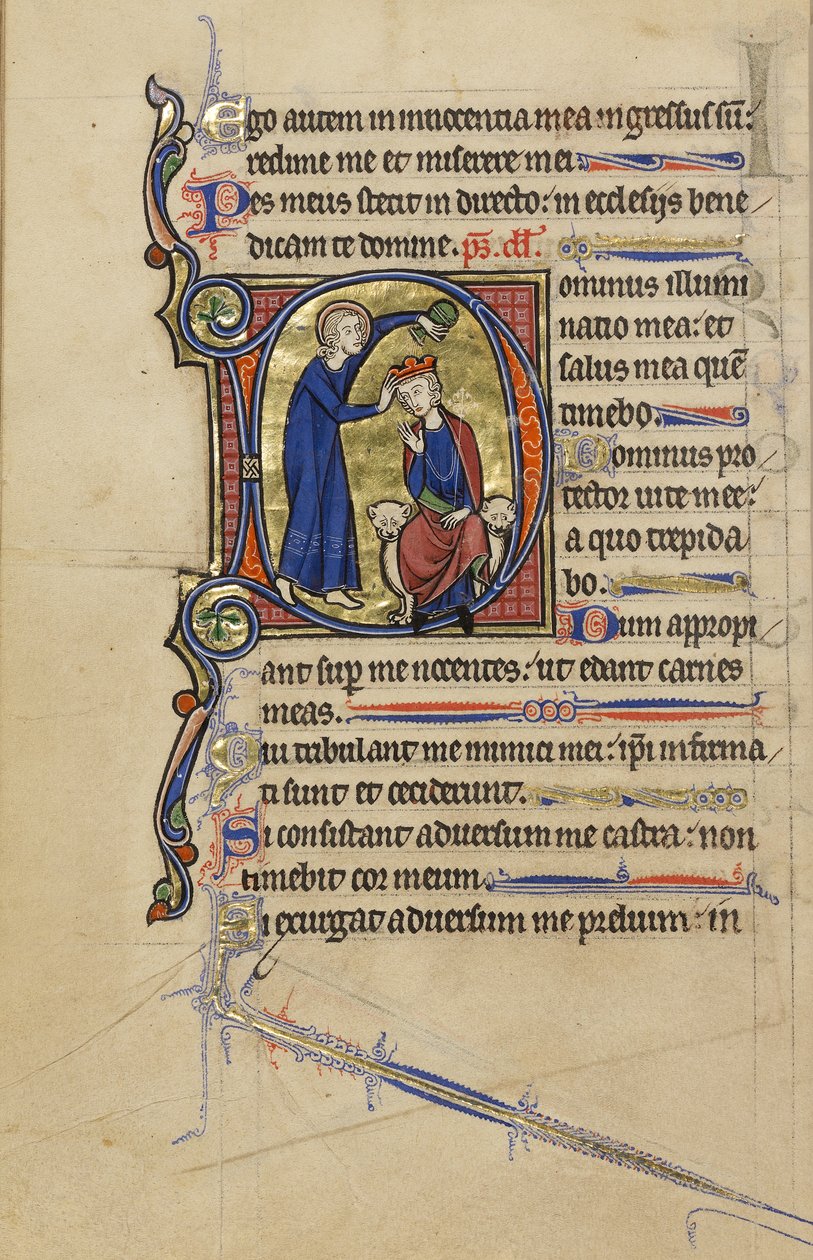 Ego autem in innocentia mea ingressus sū:
redime me et miserere mei.
Pes meus stetit in directo: in ecclesijs bene
dicam te domine. p̄s. dd̄.
Dominus illumi
natio mea: et
salus mea quē
timebo.
Dominus pro
tector uite mee:
a quo trepida
bo.
Dum appropi
ant sup̱ me nocentes: ut edant carnes
meas.
Qui tribulant me inimici mei: ip̄i infirma
ti sunt et ceciderunt.
Si consistant aduersum me castra: non
timebit cor meum.
Si exurgat aduersum me prelium: in